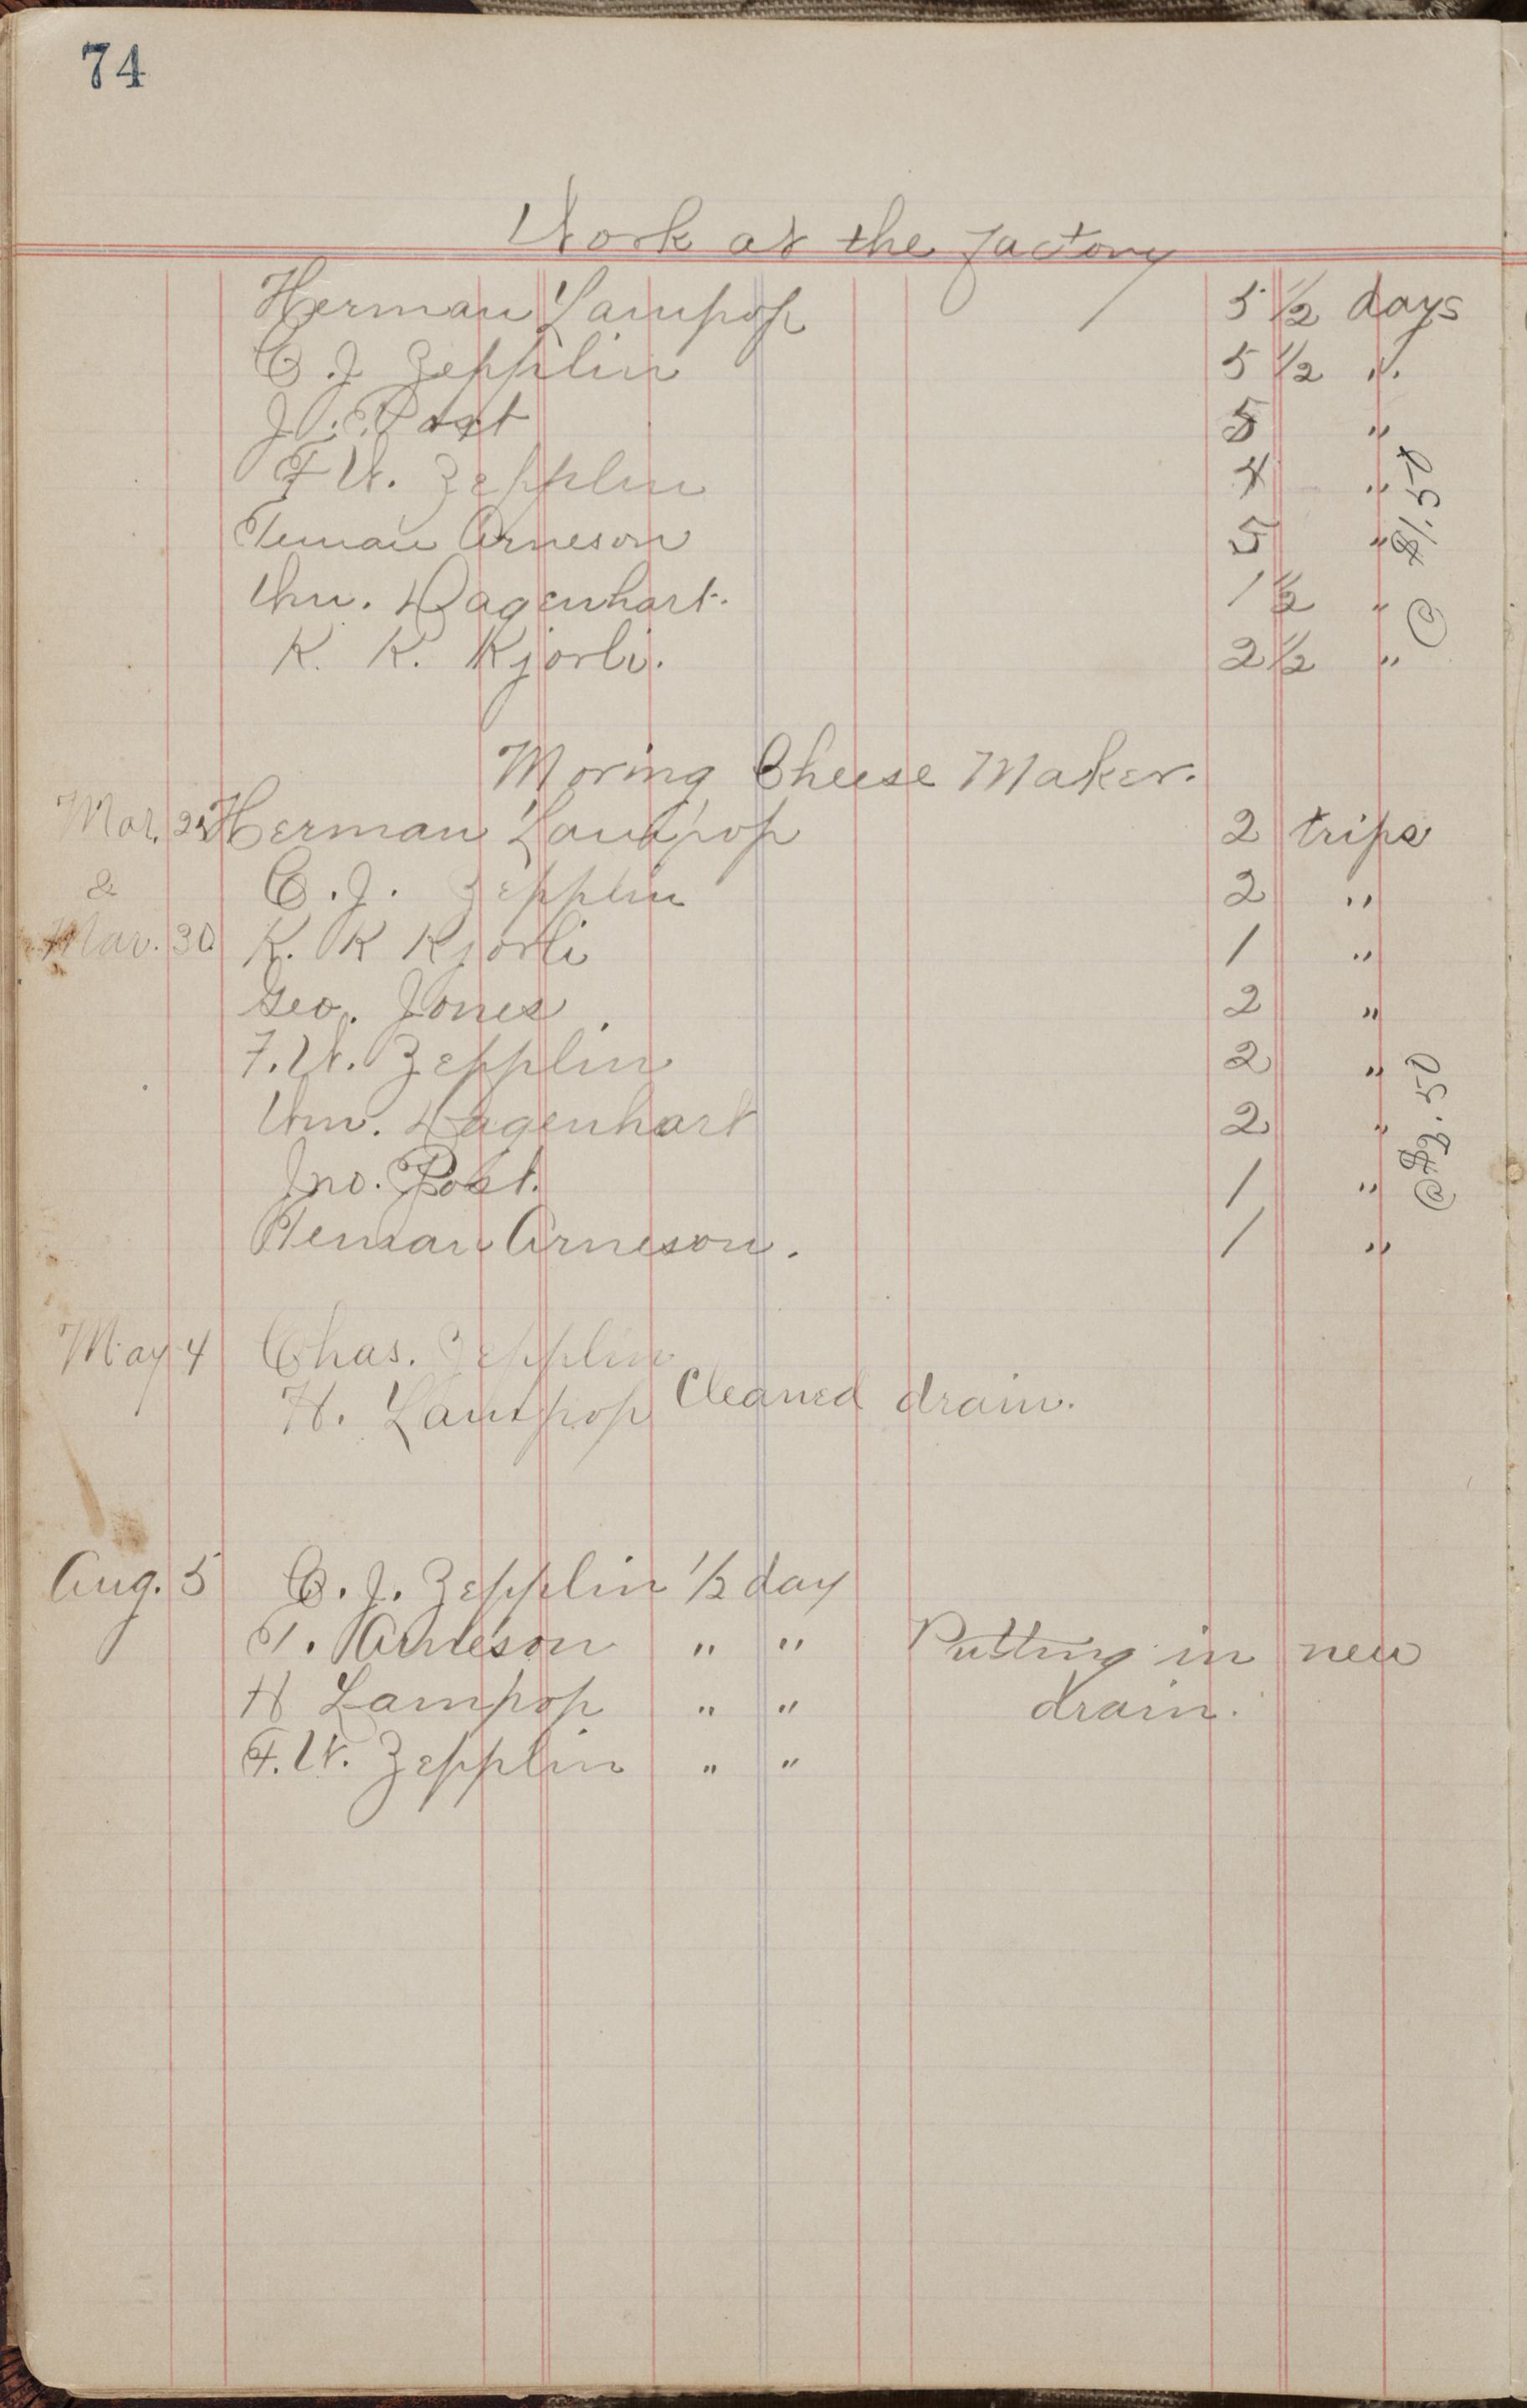 74
Work at the factory
Herman Lampop 5 1/2 days
C. J. Zepplin 5 1/2 "
J. Post 5 "
F. W. Zepplin 4 "
Teman Arneson 5 "
Wm. Dagenhart. 1 1/2 "
K. K. Kjorli. 2 1/2 "
@ $1.50
Moving Cheese Maker.
Mar. 25 Herman Lampop 2 trips
& C. J. Zepplin 2 "
Mar. 30 K. K Kjorli 1 "
Geo. Jones 2 "
F. W. Zepplin 2 "
Wm. Dagenhart 2 "
Jno. Post. 1 "
Teman Arneson. 1 "
@ $3.50
May 4 Chas. Zepplin
H. Lampop Cleaned drain.
Aug. 5 C. J. Zepplin 1/2 day
T. Arneson " " Putting in new
H Lampop " " drain.
F. W. Zepplin " "